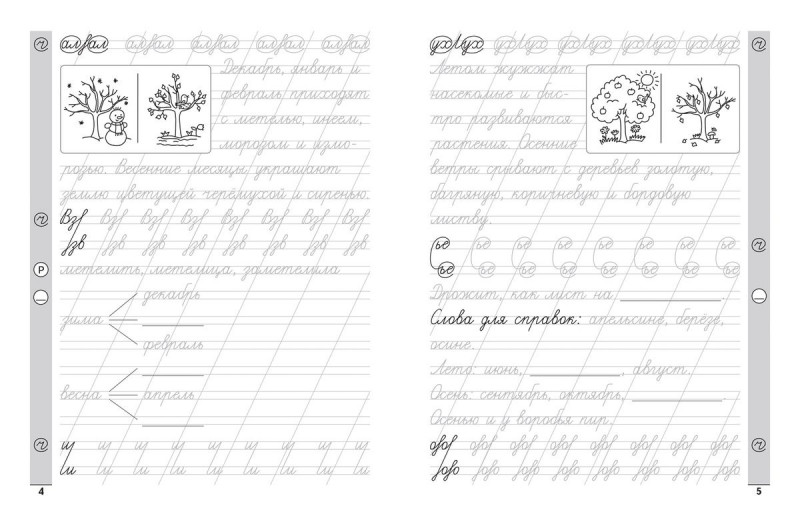 алгал алгал алгал алгал алгал
Декабрь, январь и
февраль приходят
с метелью, инеем,
морозом и измо-
розью. Весенние месяцы украшают
землю цветущей черёмухой и сиренью.
Взг Взг Взг Взг Взг Взг Взг Взг
гзв гзв гзв гзв гзв гзв гзв гзв
Р
метелить, метелица, заметелила
декабрь
зима
февраль
весна
апрель
щ щ щ щ щ щ щ щ
4
Летом жужжат
насекомые и быс-
тро развиваются
растения. Осенние
ветры срывают с деревьев золотую,
багряную, коричневую и бордовую
листву.
ье ье ье ье ье ье ье
ье ье ье ье ье ье ье
Дрожит, как лист на
Слова для справок: апельсине, берёзе,
осине.
Лето: июнь, , август.
Осень: сентябрь, октябрь,
Осенью и у воробья пир.
5